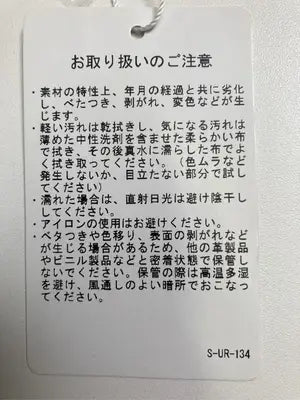 お取り扱いのご注意
・素材の特性上、年月の経過と共に劣化
し、べたつき、剥がれ、変色などが生
じます。
・軽い汚れは乾拭きし、気になる汚れは
薄めた中性洗剤を含ませた柔らかい布
で拭き、その後真水に濡らした布でよ
く拭き取ってください。（色ムラなど
発生しないか、目立たない部分で試し
てください）
・濡れた場合は、直射日光は避け陰干し
してください。
・アイロンの使用はお避けください。
・ベタつきや色移り、表面の剥がれなど
が生じる場合があるため、他の革製品
やビニル製品などと密着状態で保管し
ないでください。保管の際は高温多湿
を避け、風通しのよい暗所でおこなっ
てください。
S-UR-134